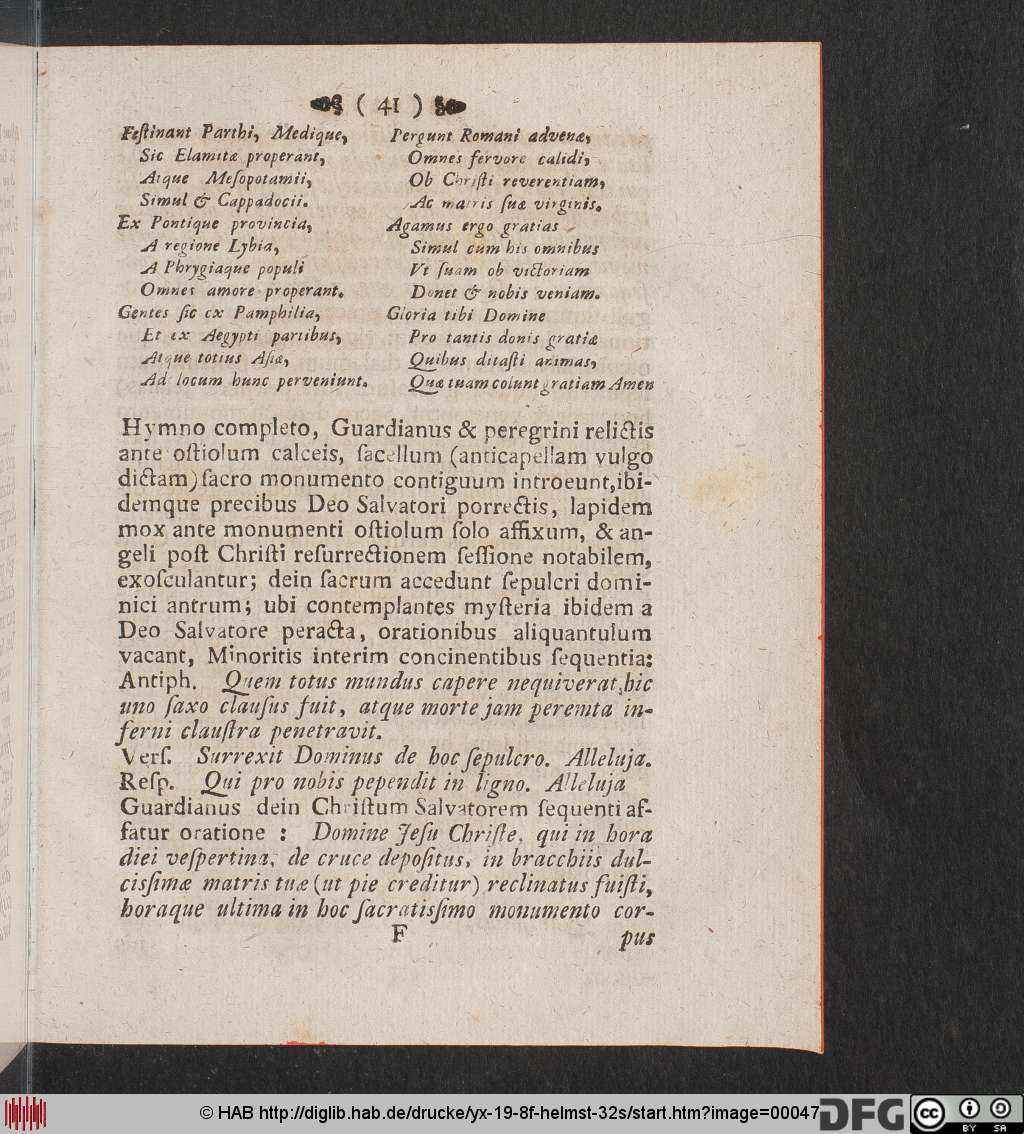 ( 41 )
Feſtinant Parthi, Medique,
Sic Elamitæ properant,
Atque Meſopotamii,
Simul & Cappadocii.
Ex Pontique provincia,
A regione Lybia,
A Phrygiaque populi
Omnes amore properant.
Gentes ſic ex Pamphilia,
Et ex Aegypti partibus,
Atque totius Aſiæ,
Ad locum hunc perveniunt.
Pergunt Romani advenæ,
Omnes fervore calidi,
Ob Chriſti reverentiam,
Ac matris ſuæ virginis.
Agamus ergo gratias
Simul cum his omnibus
Vt ſuam ob victoriam
Donet & nobis veniam.
Gloria tibi Domine
Pro tantis donis gratiæ
Quibus ditaſti animas,
Quæ tuam colunt gratiam Amen
Hymno completo, Guardianus & peregrini relictis
ante oſtiolum calceis, ſacellum (anticapellam vulgo
dictam) ſacro monumento contiguum introeunt, ibi-
demque precibus Deo Salvatori porrectis, lapidem
mox ante monumenti oſtiolum ſolo affixum, & an-
geli poſt Chriſti reſurrectionem ſeſſione notabilem,
exoſculantur; dein ſacrum accedunt ſepulcri domi-
nici antrum; ubi contemplantes myſteria ibidem a
Deo Salvatore peracta, orationibus aliquantulum
vacant, Minoritis interim concinentibus ſequentia:
Antiph. Quem totus mundus capere nequiverat, hic
uno ſaxo clauſus fuit, atque morte jam peremta in-
ferni clauſtra penetravit.
Verſ. Surrexit Dominus de hoc ſepulcro. Alleluja.
Reſp. Qui pro nobis pependit in ligno. Alleluja
Guardianus dein Chriſtum Salvatorem ſequenti af-
fatur oratione : Domine Jeſu Chriſte, qui in hora
diei veſpertina, de cruce depoſitus, in bracchiis dul-
ciſſimæ matris tuæ (ut pie creditur) reclinatus fuiſti,
horaque ultima in hoc ſacratiſſimo monumento cor-
F
pus
© HAB http://diglib.hab.de/drucke/yx-19-8f-helmst-32s/start.htm?image=00047
DFG
cc BY SA